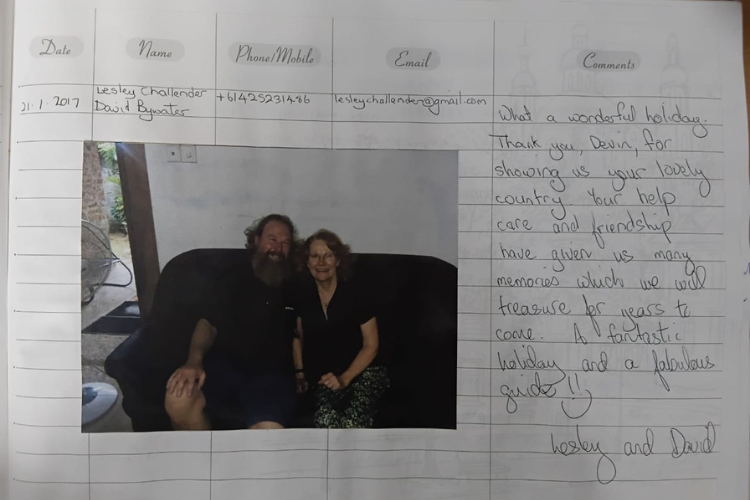 Date Name Phone/Mobile Email Comments
21.1.2017 Lesley Challender +61425231486 lesleychallender@gmail.com
David Bywater
What a wonderful holiday.
Thank you, Devin, for
showing us your lovely
country. Your help
care and friendship
have given us many
memories which we will
treasure for years to
come. A fantastic
holiday and a fabulous
guide!!
Lesley and David